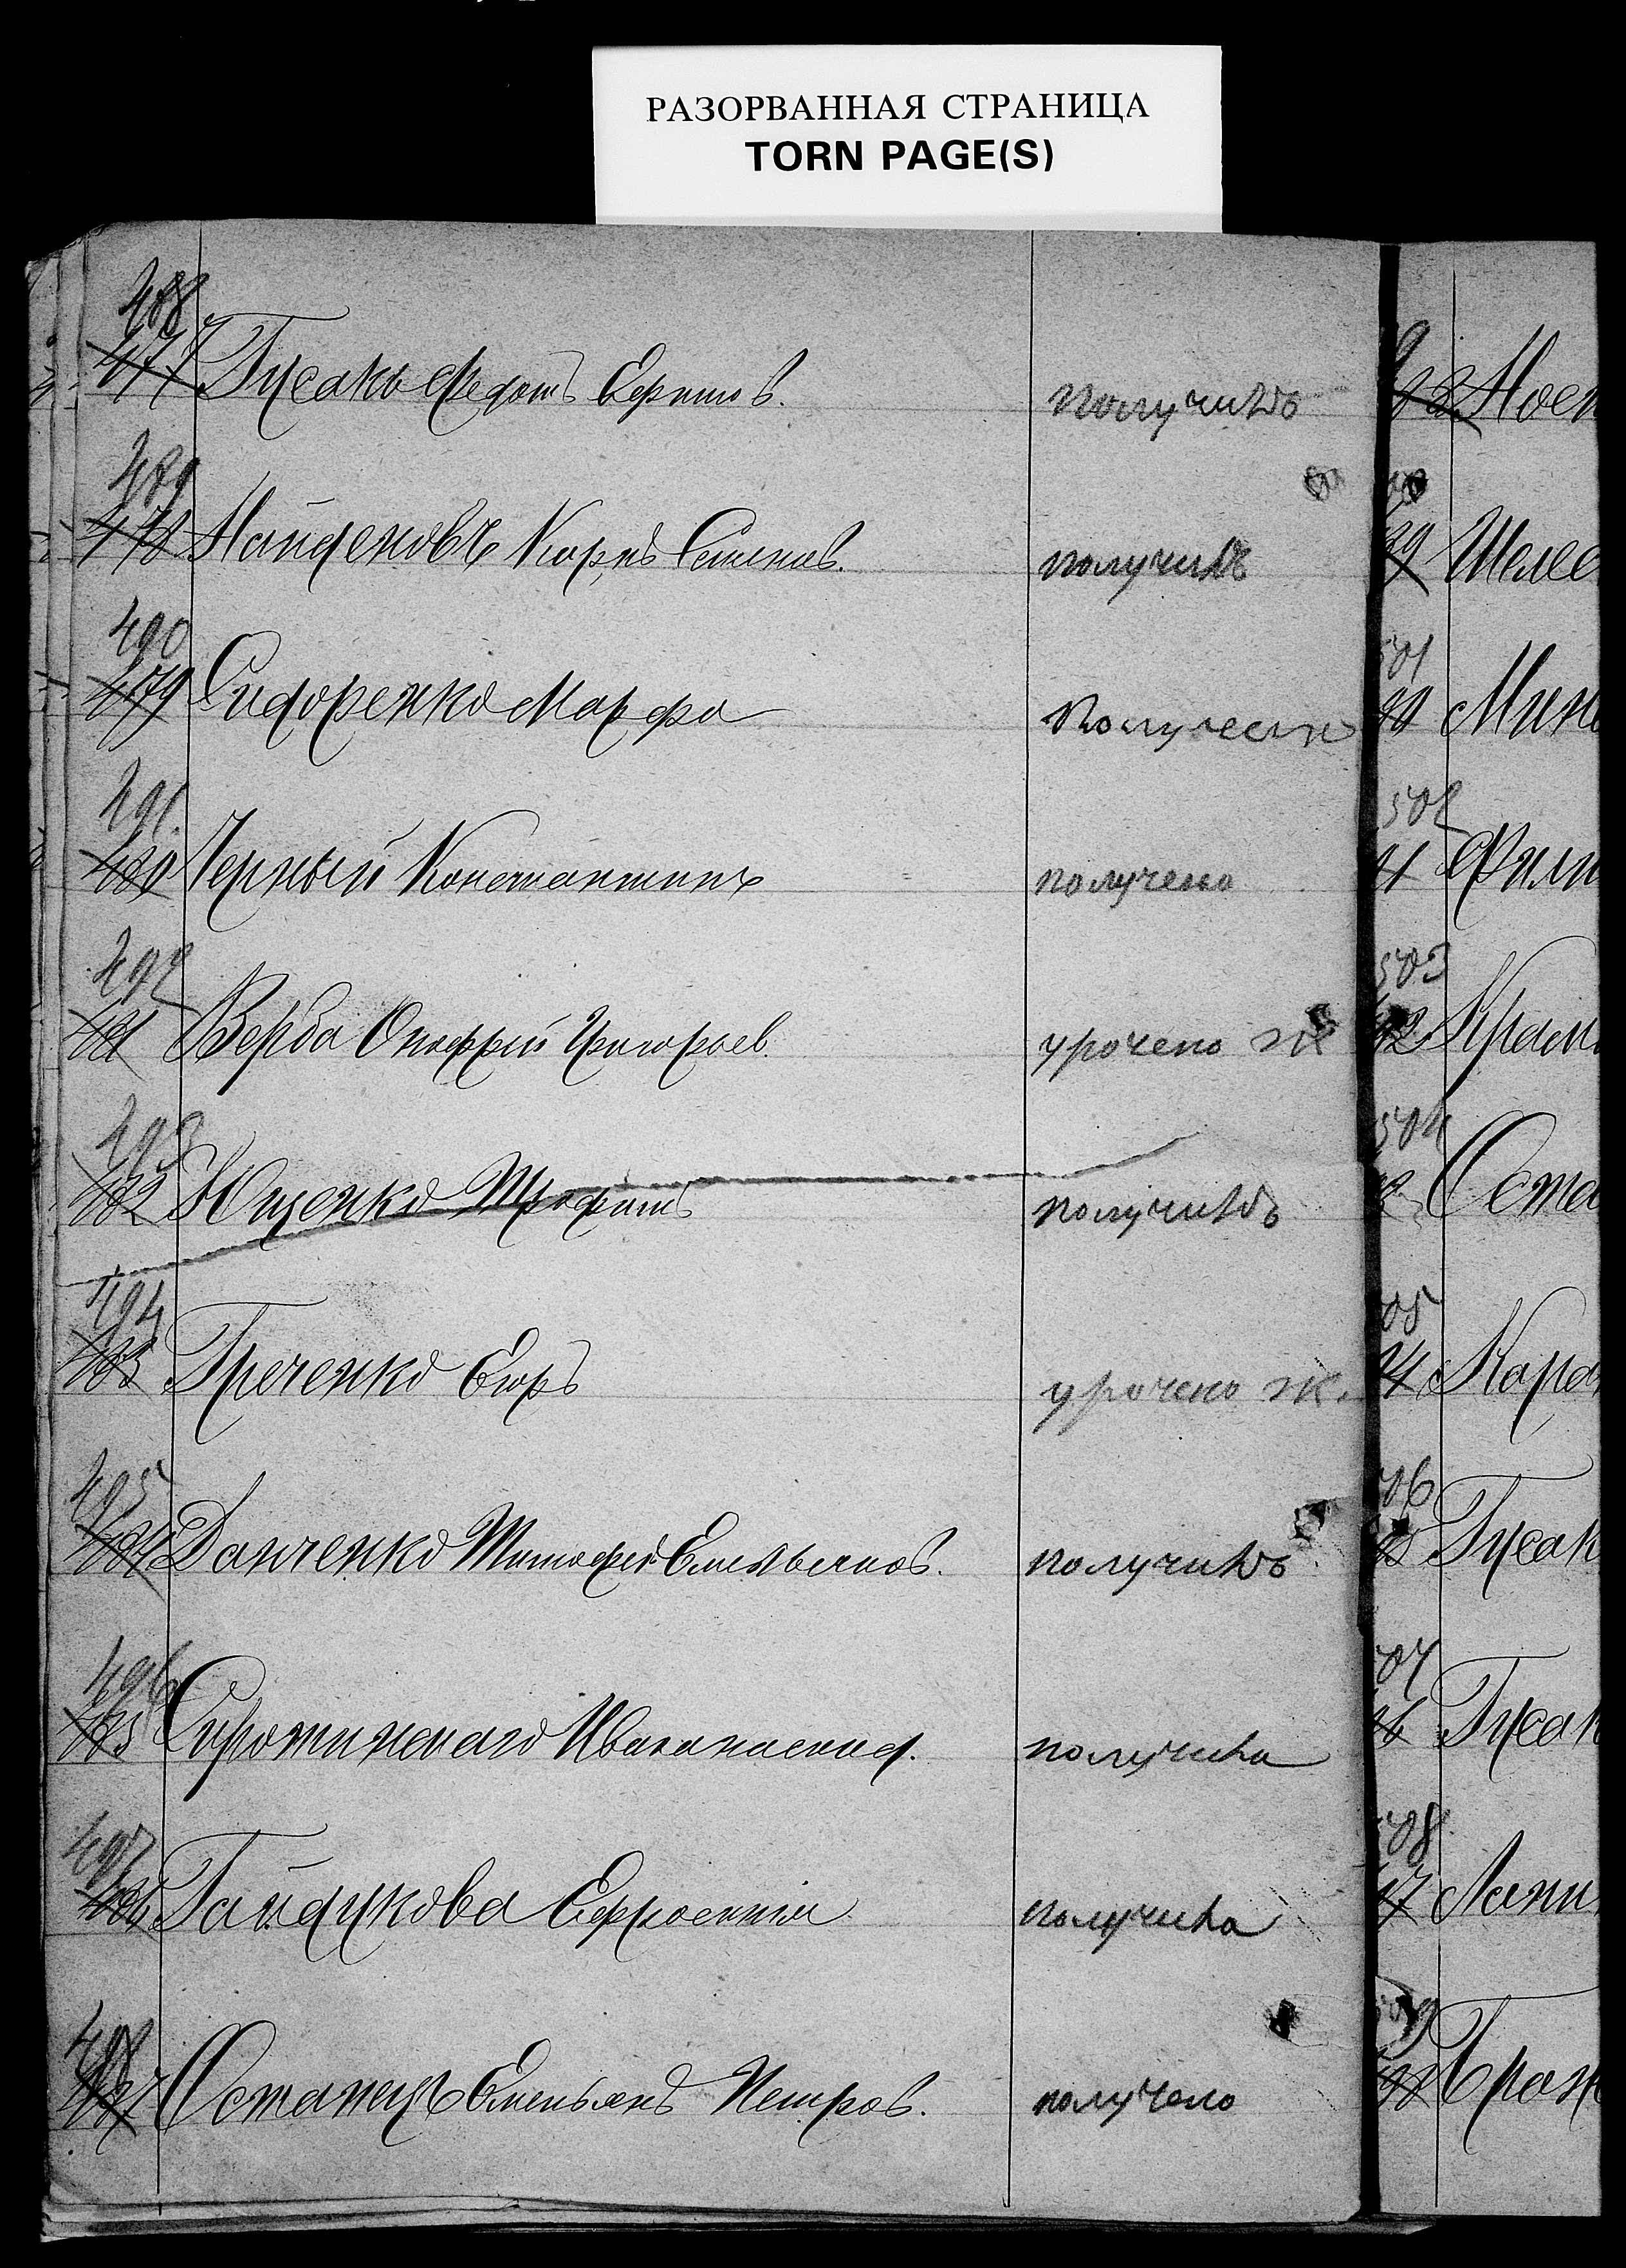 РАЗОРВАННАЯ СТРАНИЦА
TORN PAGE(S)
488
477 Гусакъ Федотъ Ефимов. получилъ
489
478 Найденовъ Карпъ Семенов. получилъ
490
479 Сидоренко Марфа
491.
480 Черный Константинъ получено
492
481 Верба Онофрій Григорьев. урочено ж
493
482 Ющенко Трофимъ получилъ
494
483 Греченко Егоръ урочено ж.
495
484 Данченко Тимофей Емельянов. получилъ
496
485 получила
497
486 Гайдукова Ефросинія получила
498
487 Остапецъ Емельянъ Петров. получено
89 Шелес
501
90 Мин
502
91 Фили
503
92 Крам
504
Оста
05
94 Кара
06
95 Гусак
07
96 Гусак
508
97 Лапи